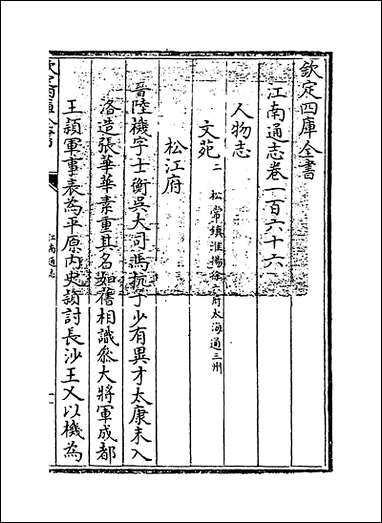 欽定四庫全書
江南通志卷一百六十六
人物志
文苑二 松常鎮淮揚徐六府太海通三州
松江府
晉陸機字士衡吳大司馬抗子少有異才太康末入
洛造張華華素重其名如舊相識叅大將軍成都
王頴軍事表為平原内史頴討長沙王乂以機為
江南通志